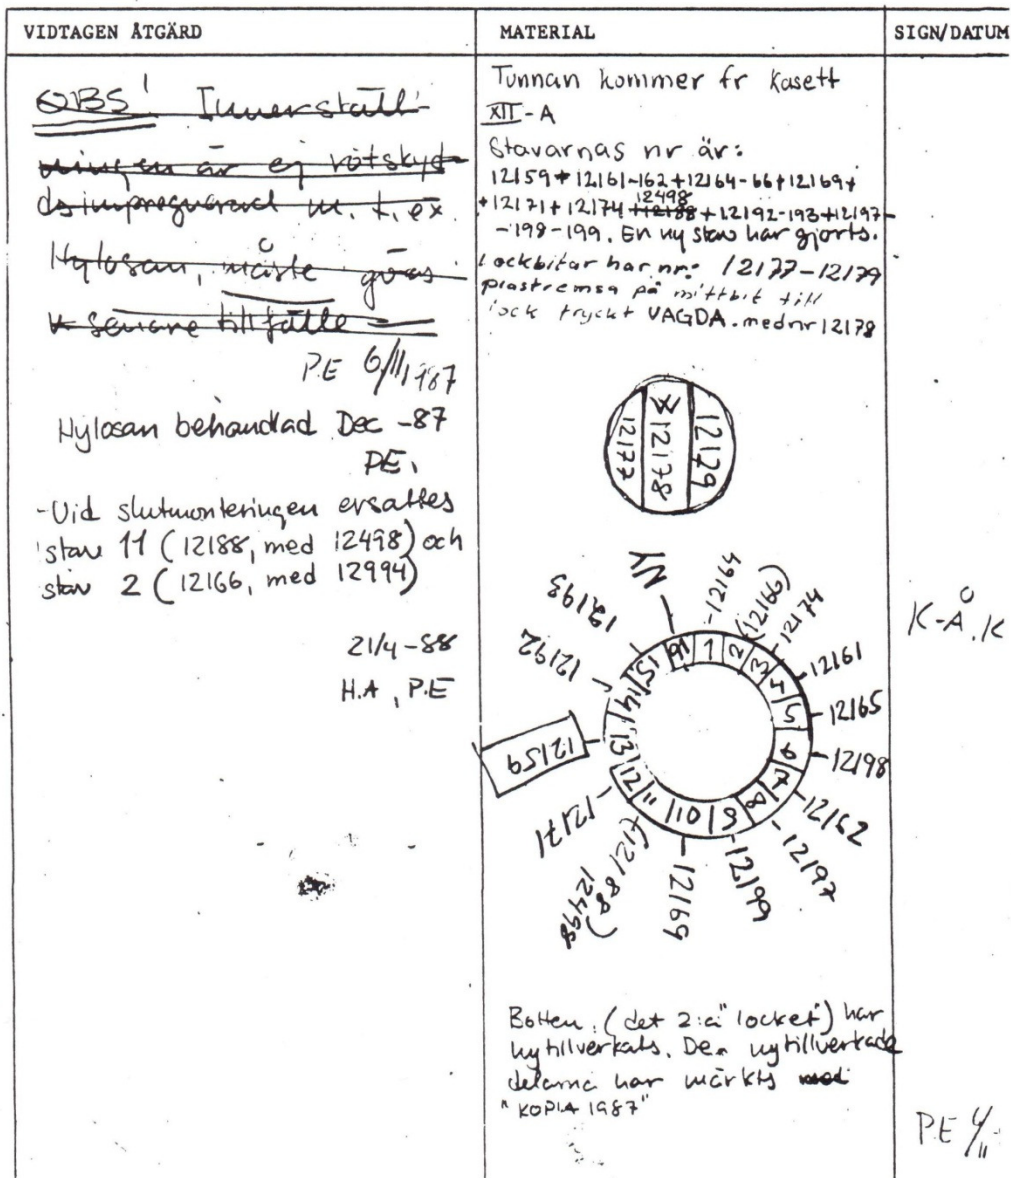 VIDTAGEN ÅTGÄRD
MATERIAL
SIGN/DATUM
OBS! Innerställ-
ningen är ej rötskyd-
dsimpregnerad m. t.ex.
Hylosan, måste göras
v senare tillfälle
P.E 6/11 1987
Hylosan behandlad Dec -87
P.E.
-Vid slutmonteringen ersattes
stav 11 (12188, med 12498) och
stav 2 (12166, med 12994)
21/4-88
H.A, P.E
Tunnan kommer fr Kasett
XII-A
Stavarnas nr är:
12159+12161-162+12164-66+12169+
12498
+12171+12174+12188+12192-193+12197-
-198-199. En ny stav har gjorts.
Lockbitar har nr: 12177-12179
plastremsa på mittbit till
lock tryckt VAGDA. med nr 12178
12177
12178
12179
NY
12164
(12166)
12174
12161
12165
12198
12162
12197
12199
12169
(12188)
12498
12171
12159
12192
12193
16 1 2 3 4 5 6 7 8 9 10 11 12 13 14 15
K-Å.K
Botten, (det 2:a "locket") har
nytillverkats. De nytillverkade
delarna har märkts med
"KOPIA 1987"
P.E 6/11